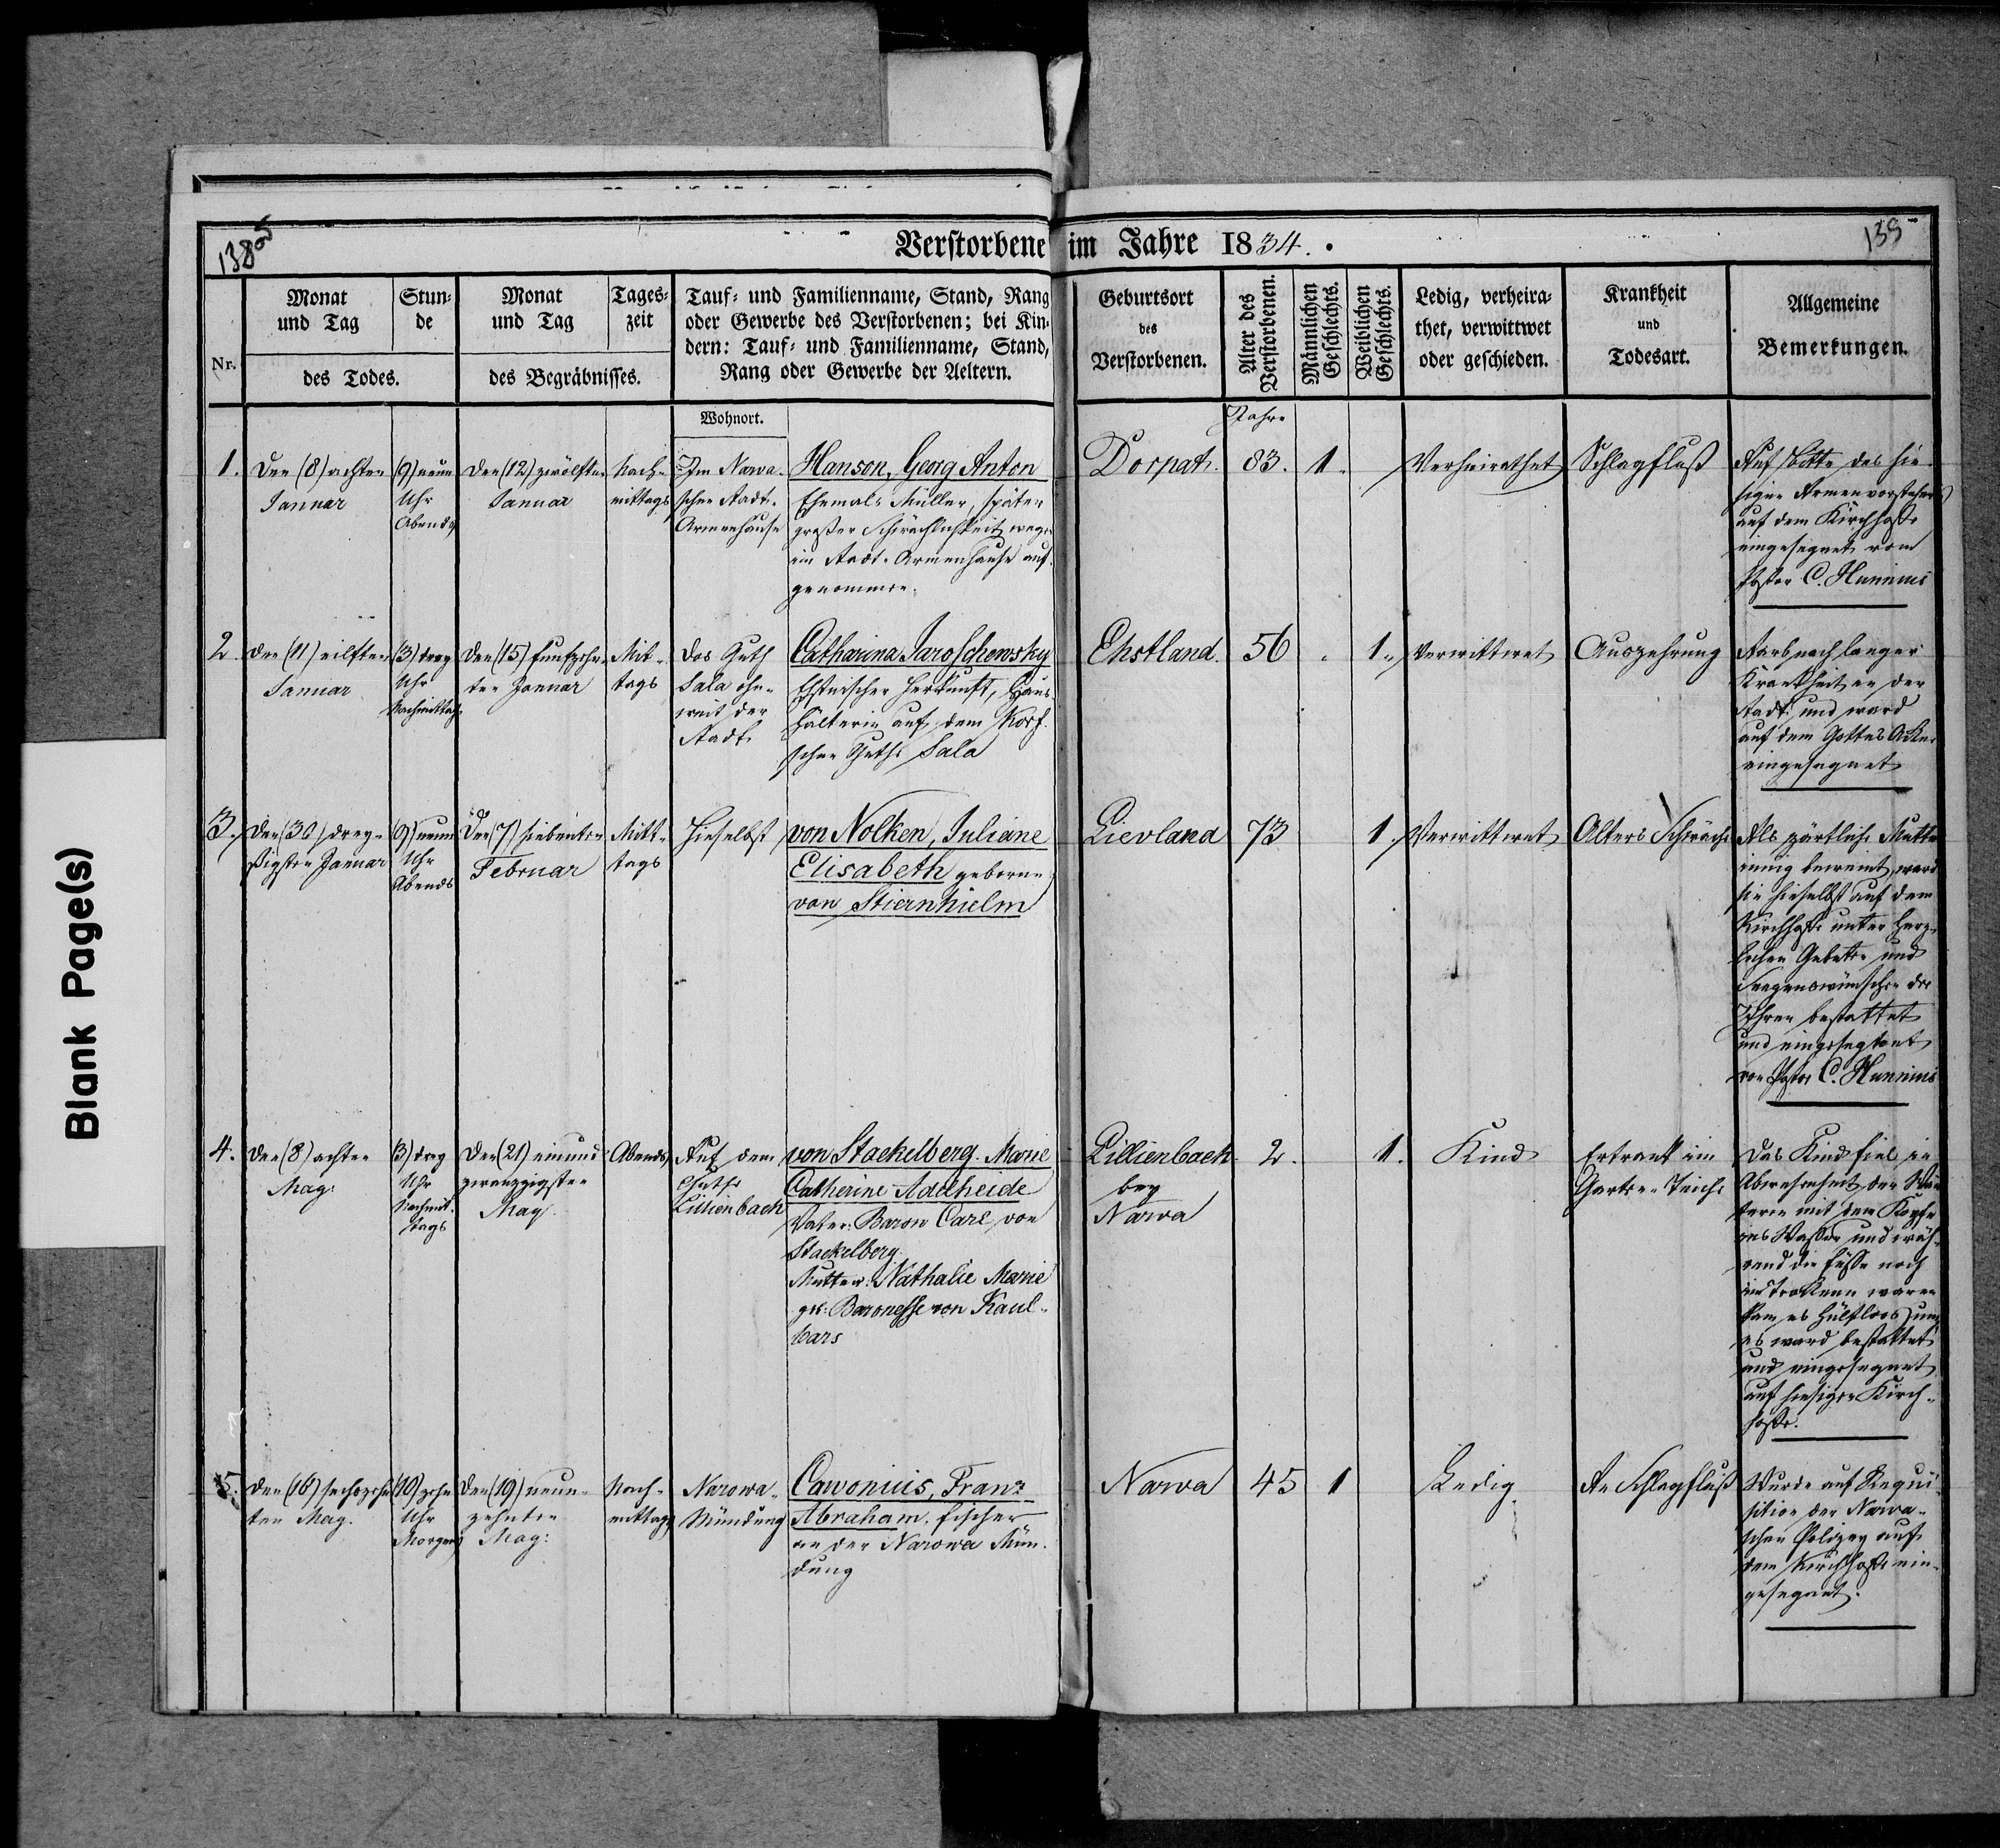 138
139
Verstorbene im Jahre 1834.
Nr.
Monat und Tag
Stun-
de
des Todes.
Monat und Tag
Tages-
zeit
des Begräbnisses.
Tauf- und Familienname, Stand, Rang
oder Gewerbe des Verstorbenen; bei Kin-
dern: Tauf- und Familienname, Stand,
Rang oder Gewerbe der Aeltern.
Wohnort.
Geburtsort
des
Verstorbenen.
Alter des
Verstorbenen.
Männlichen
Geschlechts.
Weiblichen
Geschlechts.
Ledig, verheira-
thet, verwittwet
oder geschieden.
Krankheit
und
Todesart.
Allgemeine
Bemerkungen.
Jahre
1.
Den (8) achten
Januar
(9) neun
Uhr
Abends
Den (12) zwölften
Januar
Nach-
mittags
Im Narva-
schen Stadt-
Armenhause
Hanson, Georg Anton
Ehemals Müller, später
großer Schwächlichkeit wegen
im Stadt-Armenhause auf-
genommen.
Dorpat.
83.
1.
Verheirathet
Schlagfluß
Auf Bitte des hie-
sigen Armenvorstehers
auf dem Kirchhofe
eingesegnet vom
Pastor C. Hunnius
2.
Den (11) eilften
Januar
(3) drey
Uhr
Nachmittags
Den (15) funfzehn-
ten Januar
Mit-
tags
Das Guth
Sala ohn-
weit der
Stadt
Catharina Jaroschewsky
Ehstnischer Herkunft, Haus-
hälterin auf dem Korf-
schen Guthe Sala
Ehstland.
56
1.
Verwittwet
Auszehrung
Starb nach langer
Krankheit in der
Stadt und ward
auf dem Gottes Acker
eingesegnet
3.
Den (30) drey-
ßigsten Januar
(9) neun
Uhr
Abends
Den (7) siebenten
Februar
Mitt-
tags
Hieselbst
von Nolken, Juliane
Elisabeth geborne
von Stiernhielm
Lievland
73
1.
Verwittwet
Alters Schwäche
Als zärtliche Mutter
innig beweint, ward
sie hieselbst auf dem
Kirchhofe unter herz-
lichen Gebeten und
Seegenswünschen der
Ihren bestattet
und eingesegnet
von Pastor C. Hunnius
4.
Den (8) achten
May.
(3) drey
Uhr
Nachmit-
tags
Den (21) einund
zwanzigsten
May.
Abends
Auf dem
Guthe
Lilienbach
von Stackelberg. Marie
Catherine Adelheide
Vater: Baron Carl von
Stackelberg.
Mutter: Nathalie Marie
geb. Baronesse von Kaul-
bars
Lillienbach
bey
Narva
2.
1.
Kind
Ertrank im
Garten-Teiche
Das Kind fiel in
Abwesenheit der Wär-
terin mit dem Kopfe
ins Wasser und wäh-
rend die Füsse noch
im Trocknen waren
kam es hülfloos um
es ward bestattet
und eingesegnet
auf hiesigem Kirch-
hofe.
5.
Den (16) sechszehn-
ten May.
(10) zehn
Uhr
Morgens
Den (19) neun-
zehnten
May.
Nach-
mittags
Narowa-
Mündung
Cawonius, Franz
Abraham. Fischer
an der Narowa Mün-
dung
Narva
45
1
Ledig
An Schlagfluß
Wurde auf Requi-
sition der Narva-
schen Polizey auf
dem Kirchhofe ein-
gesegnet.
Blank Page(s)